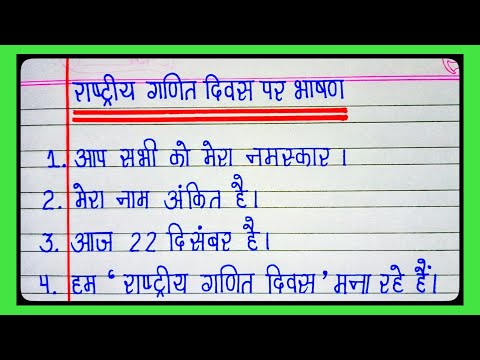 राष्ट्रीय गणित दिवस पर भाषण
1. आप सभी को मेरा नमस्कार ।
2. मेरा नाम अंकित है।
3. आज 22 दिसंबर है।
4. हम ‘राष्ट्रीय गणित दिवस’ मना रहे हैं।